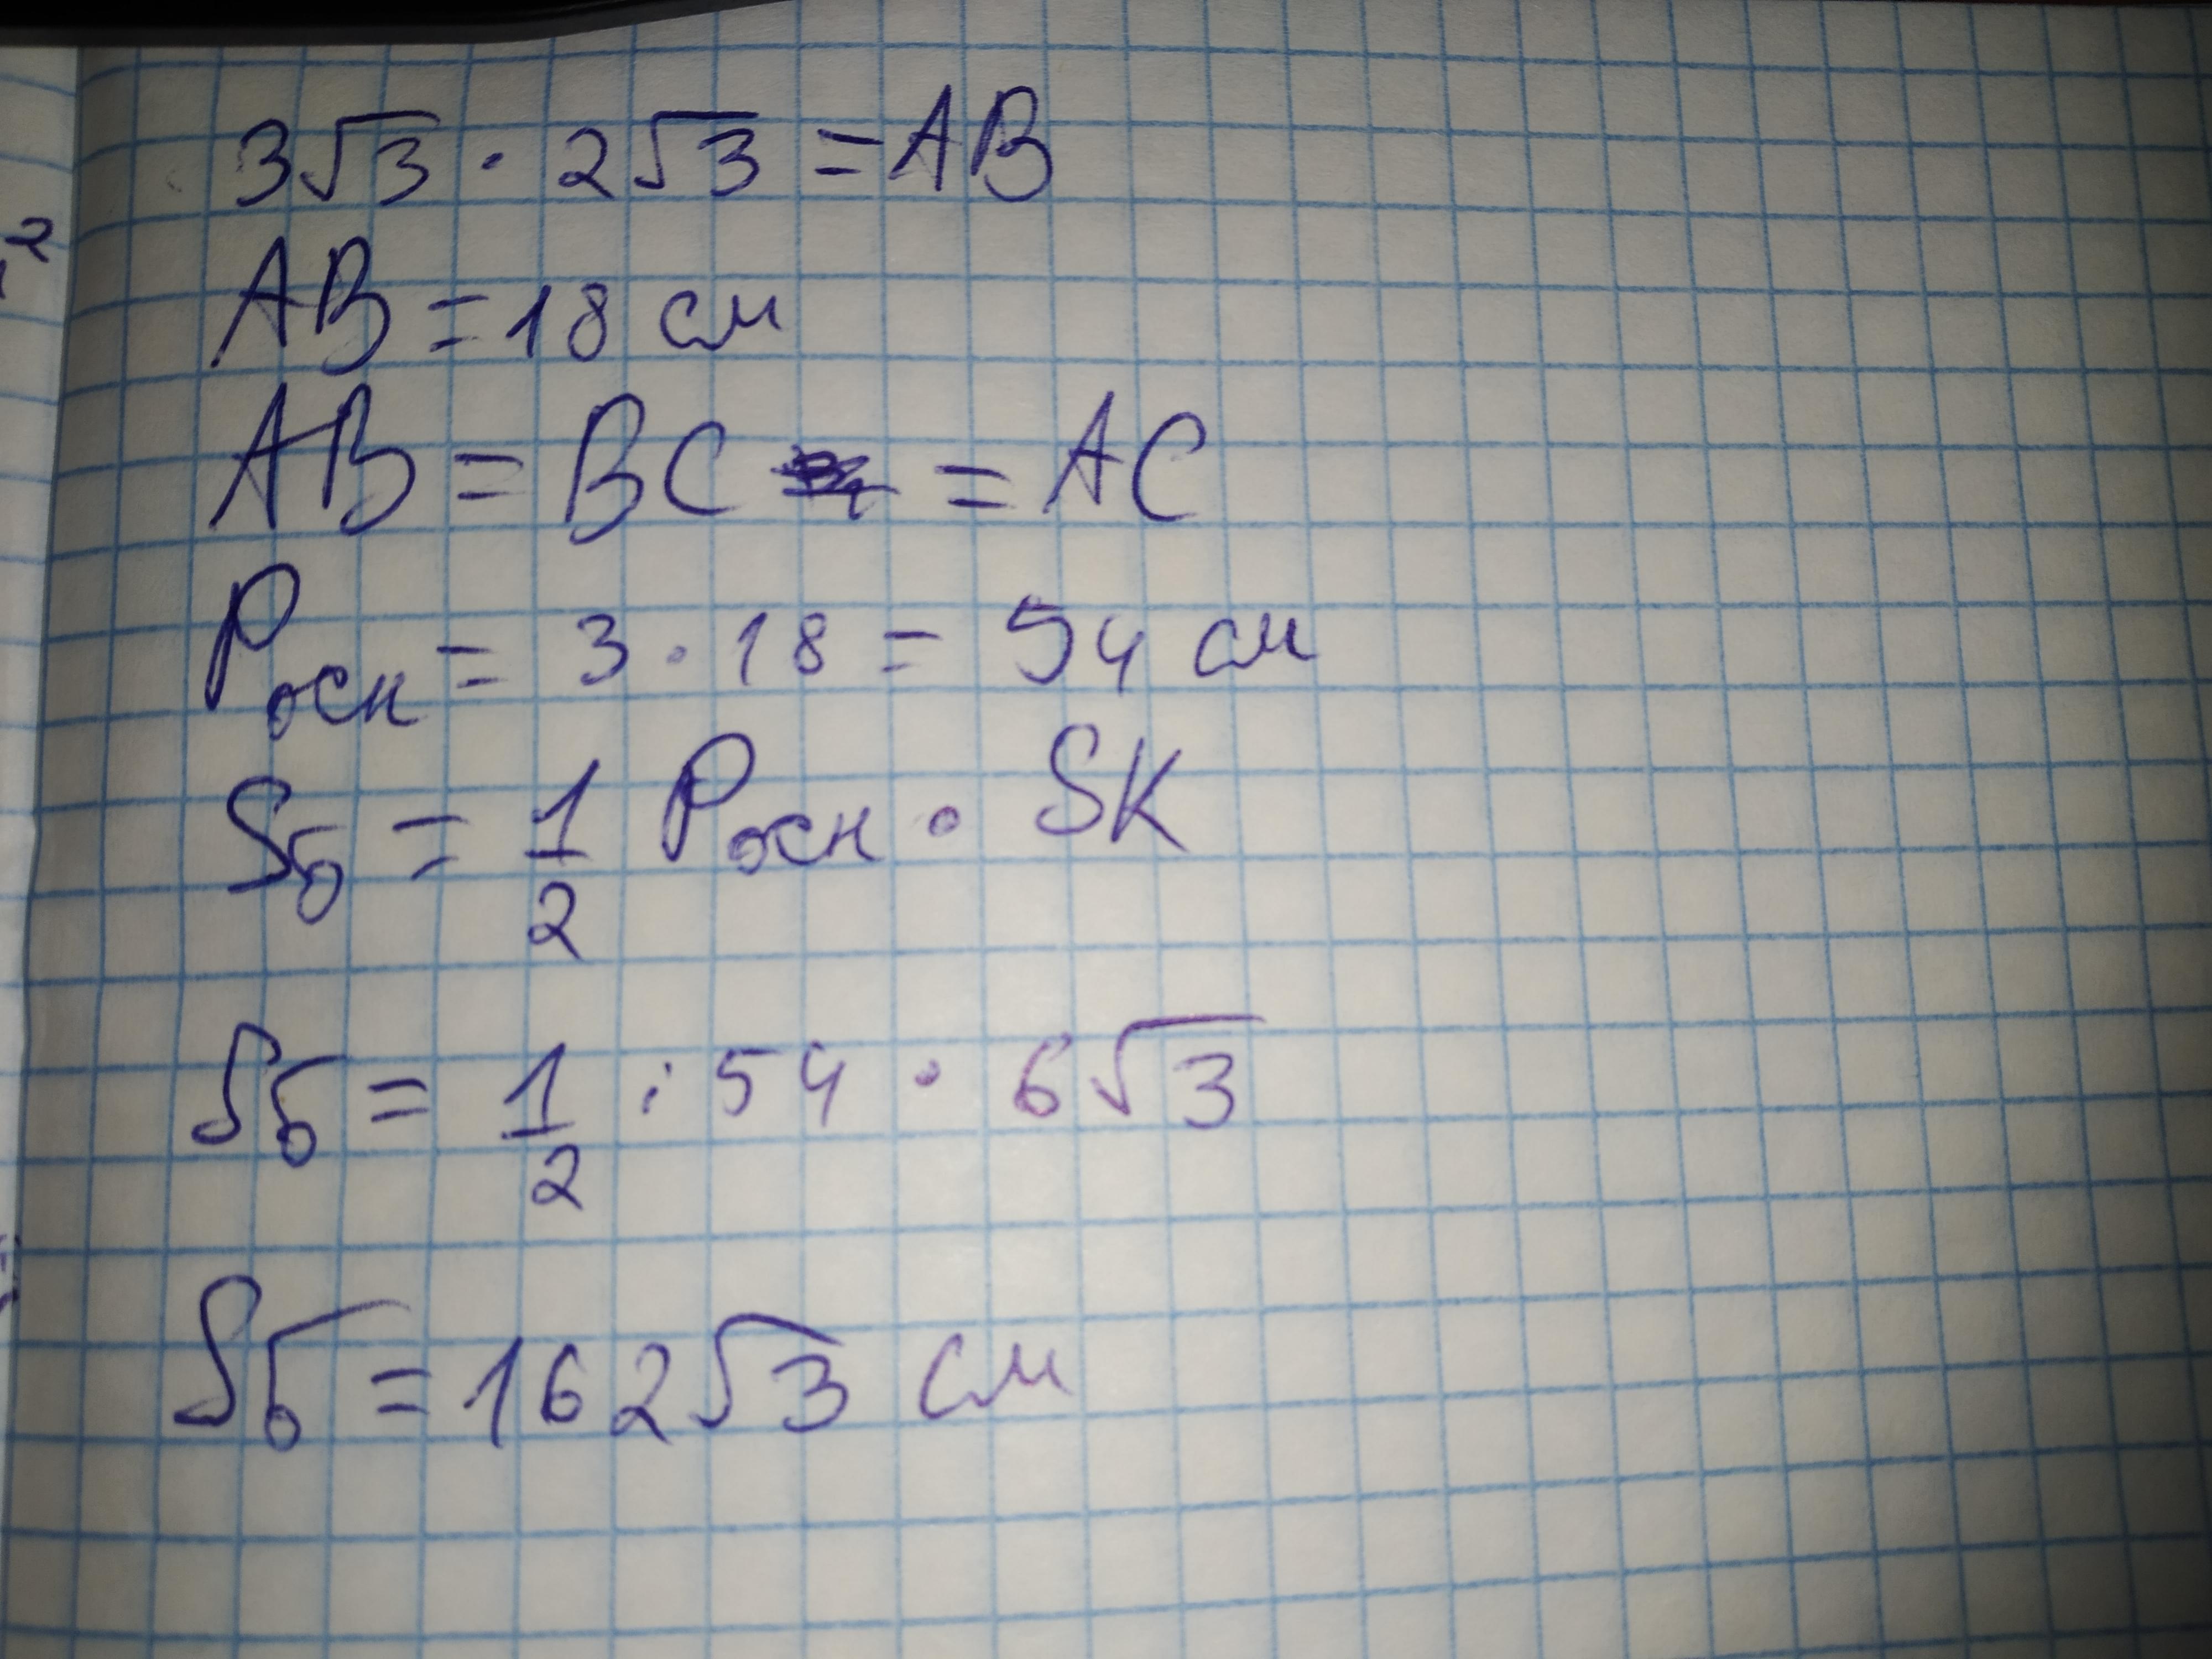 3√3 · 2√3 = AB
AB = 18 см
AB = BC = AC
Pосн = 3 · 18 = 54 см
Sб = 1/2 Pосн · SK
Sб = 1/2 · 54 · 6√3
Sб = 162√3 см
2